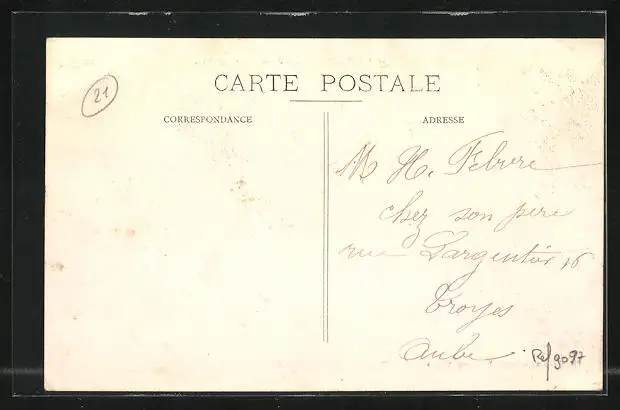 21
CARTE POSTALE
CORRESPONDANCE
ADRESSE
M H. Febvre
chez son père
rue Largentier 16
Troyes
Aube
Ref 9097